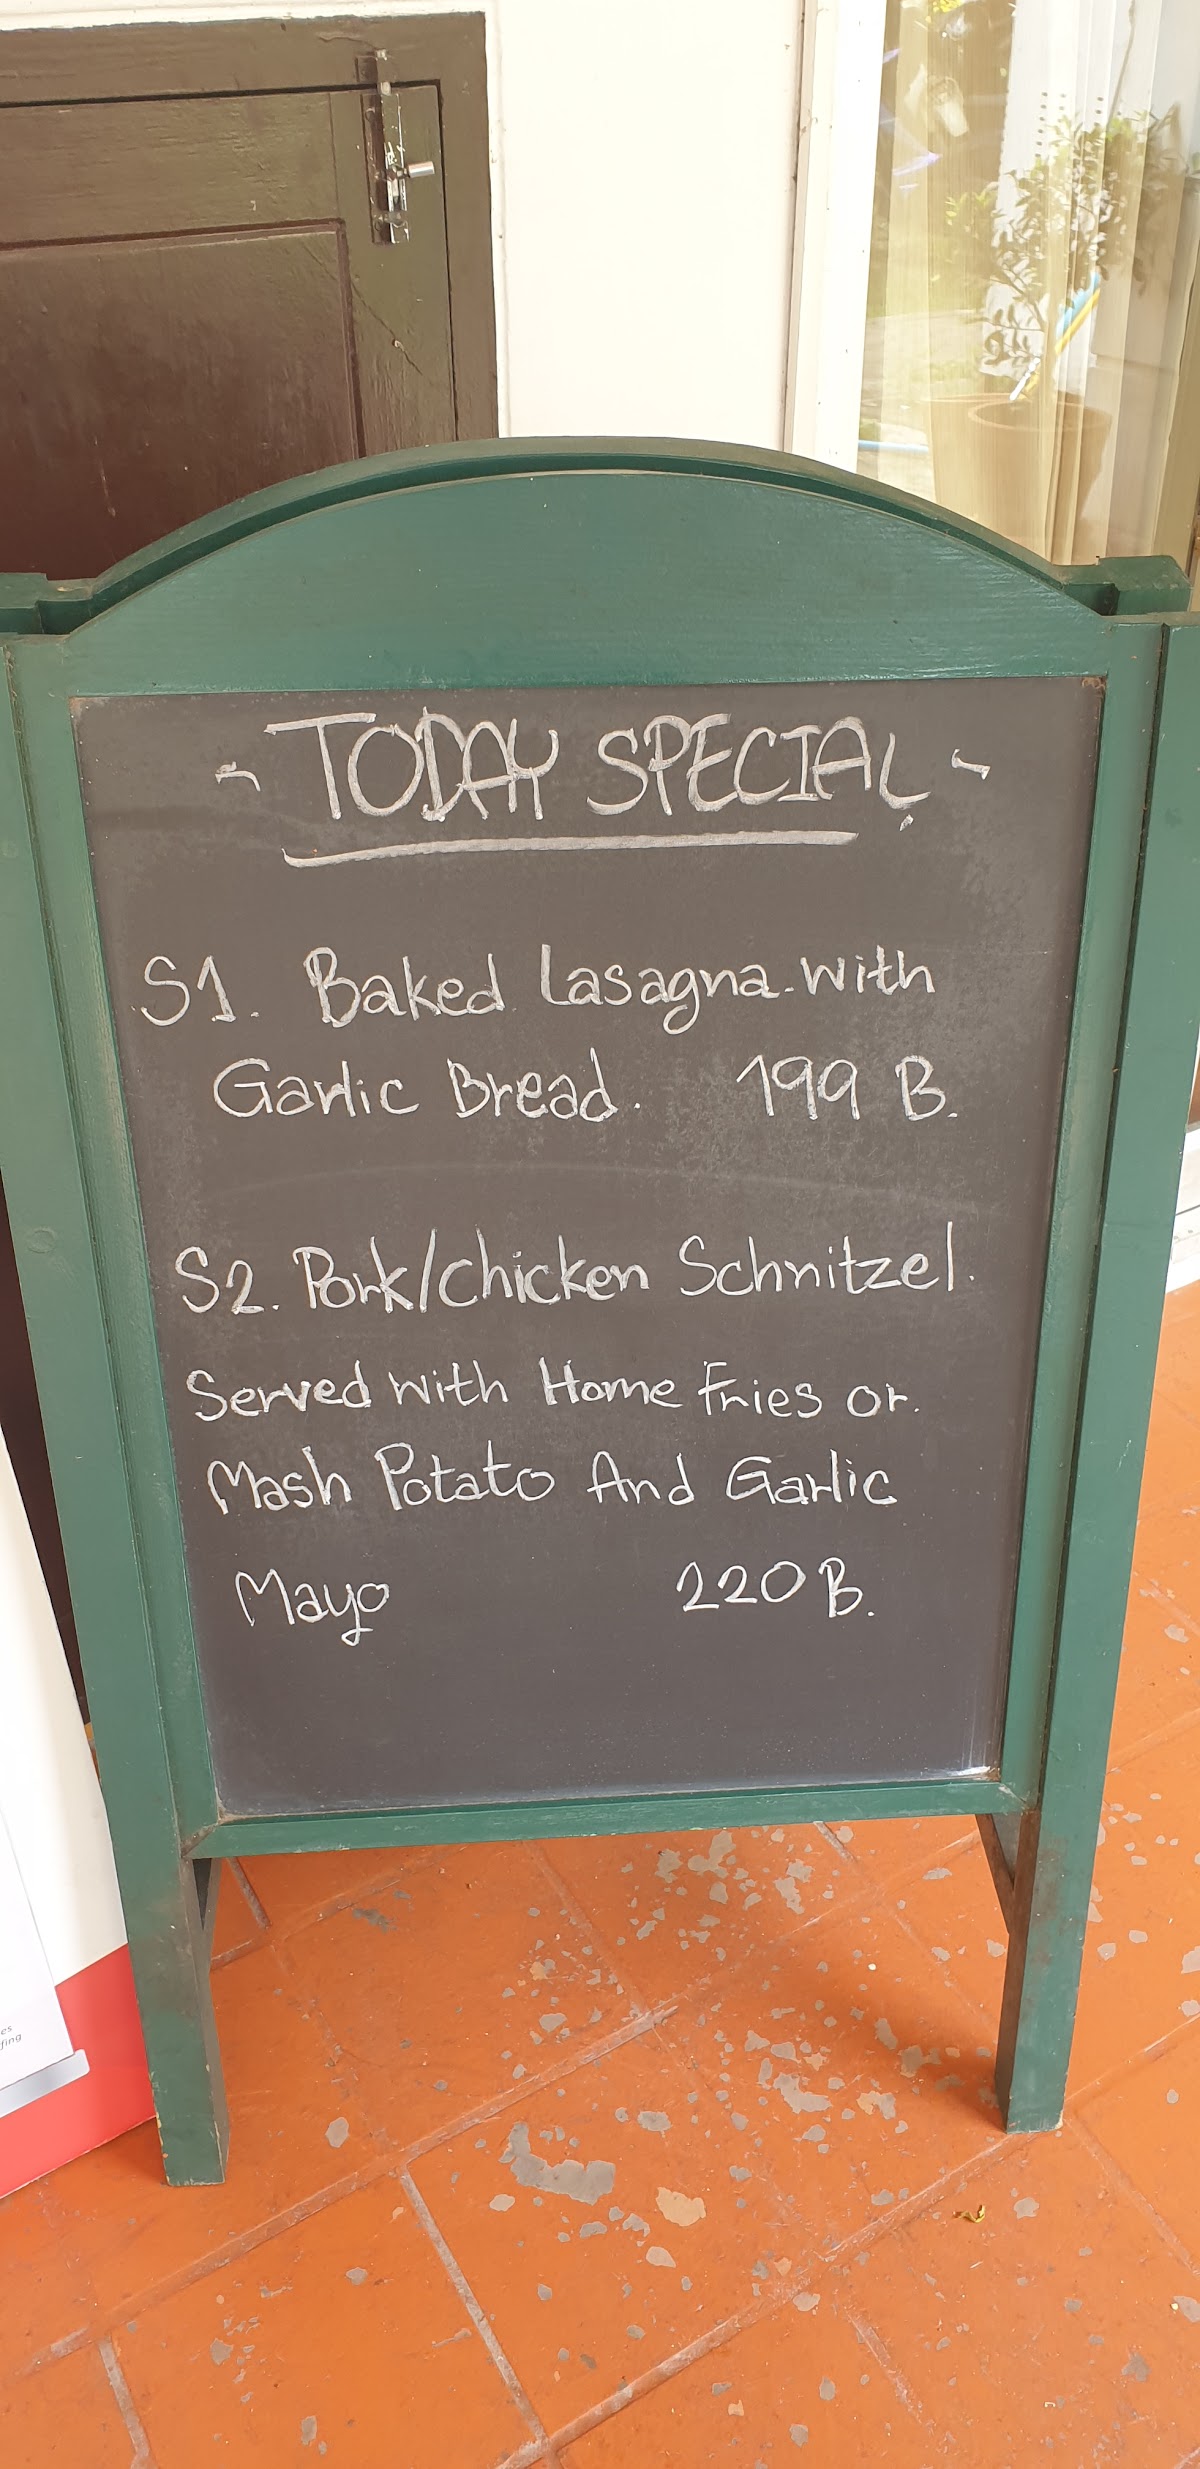 - TODAY SPECIAL -
S1. Baked Lasagna with
Garlic Bread. 199 B.
S2. Pork/chicken Schnitzel.
Served with Home Fries or.
Mash Potato And Garlic
Mayo 220 B.
es
fing